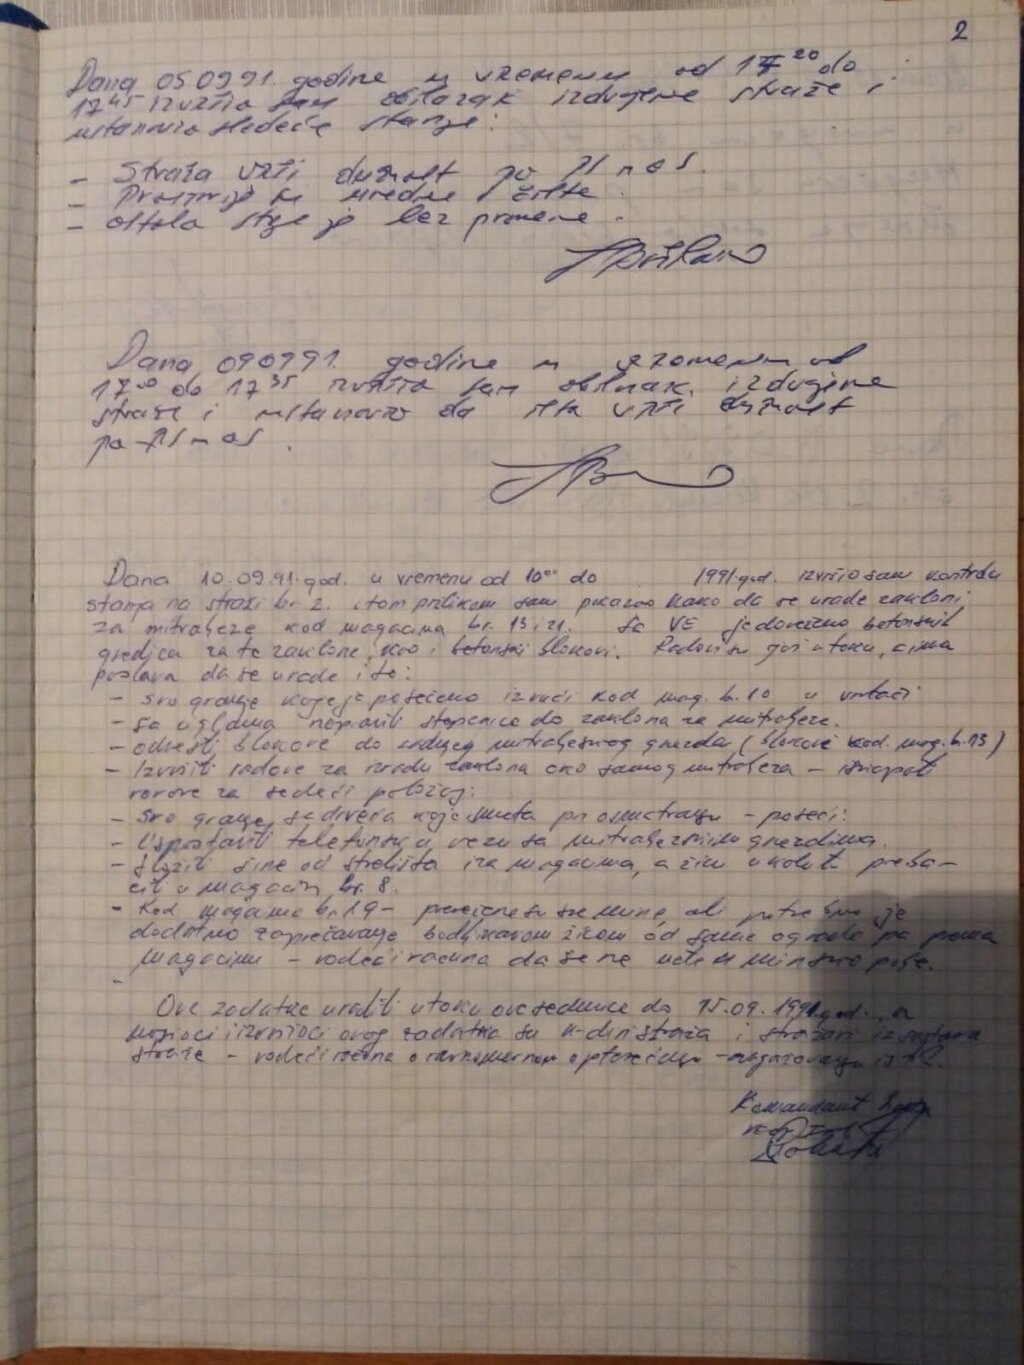 2
Dana 05 09 91. godine u vremenu od 17 20 do
17 45 izvršio sam obilazak izdvojene straže i
ustanovio sledeće stanje:
- Straža vrši dužnost po PS n OS.
- Prostorije su uredne i čiste.
- ostalo stanje je bez promene.
Dana 090991. godine u vremenu od
17 00 do 17 35 izvršio sam obilazak izdvojene
straže i ustanovio da ista vrši dužnost
po PS n OS.
Dana 10.09.91.god. u vremenu od 10 00 do 1991.god. izvršio sam kontrolu
stanja na straži br 2. i tom prilikom sam pokazao kako da se urade zakloni
za mitraljeze kod magacina br. 13 i 21. Sa VE je dovezeno betonskih
gredica za te zaklone, kao i betonski blokovi. Radovi su još u toku, a ima
poslova da se urade i to:
- svo granje koje je posečeno izvući kod mag. br. 10 u vrtači
- sa ciglama napraviti stepenice do zaklona za mitraljeze.
- odneti blokove do mitraljeskog gnezda (blokove kod. mag. br. 13)
- Izvršiti radove za izradu zaklona oko samog mitraljeza - iskopati
rovove za sedeći položaj.
- svo granje sa drveća koje smeta pri osmatranju - poseći.
- Uspostaviti telefonsku vezu sa mitraljeskim gnezdima.
- Složiti šine od strelišta iza magacina, a žicu u koluti preba-
citi u magacin br. 8.
- Kod magacina br. 19 - je
dodatno zaprečavanje bodljikavom žicom od same ograde pa prema
magacinu - vodeći računa da se ne uđe u minsko polje.
Ove zadatke uraditi u toku ove sedmice do 15.09.1991.god., a
nosioci i izvršioci ovog zadatka su k-diri straža i stražari iz sastava
straže - vodeći računa o ravnomernom opterećenju - angažovanju
Komandant